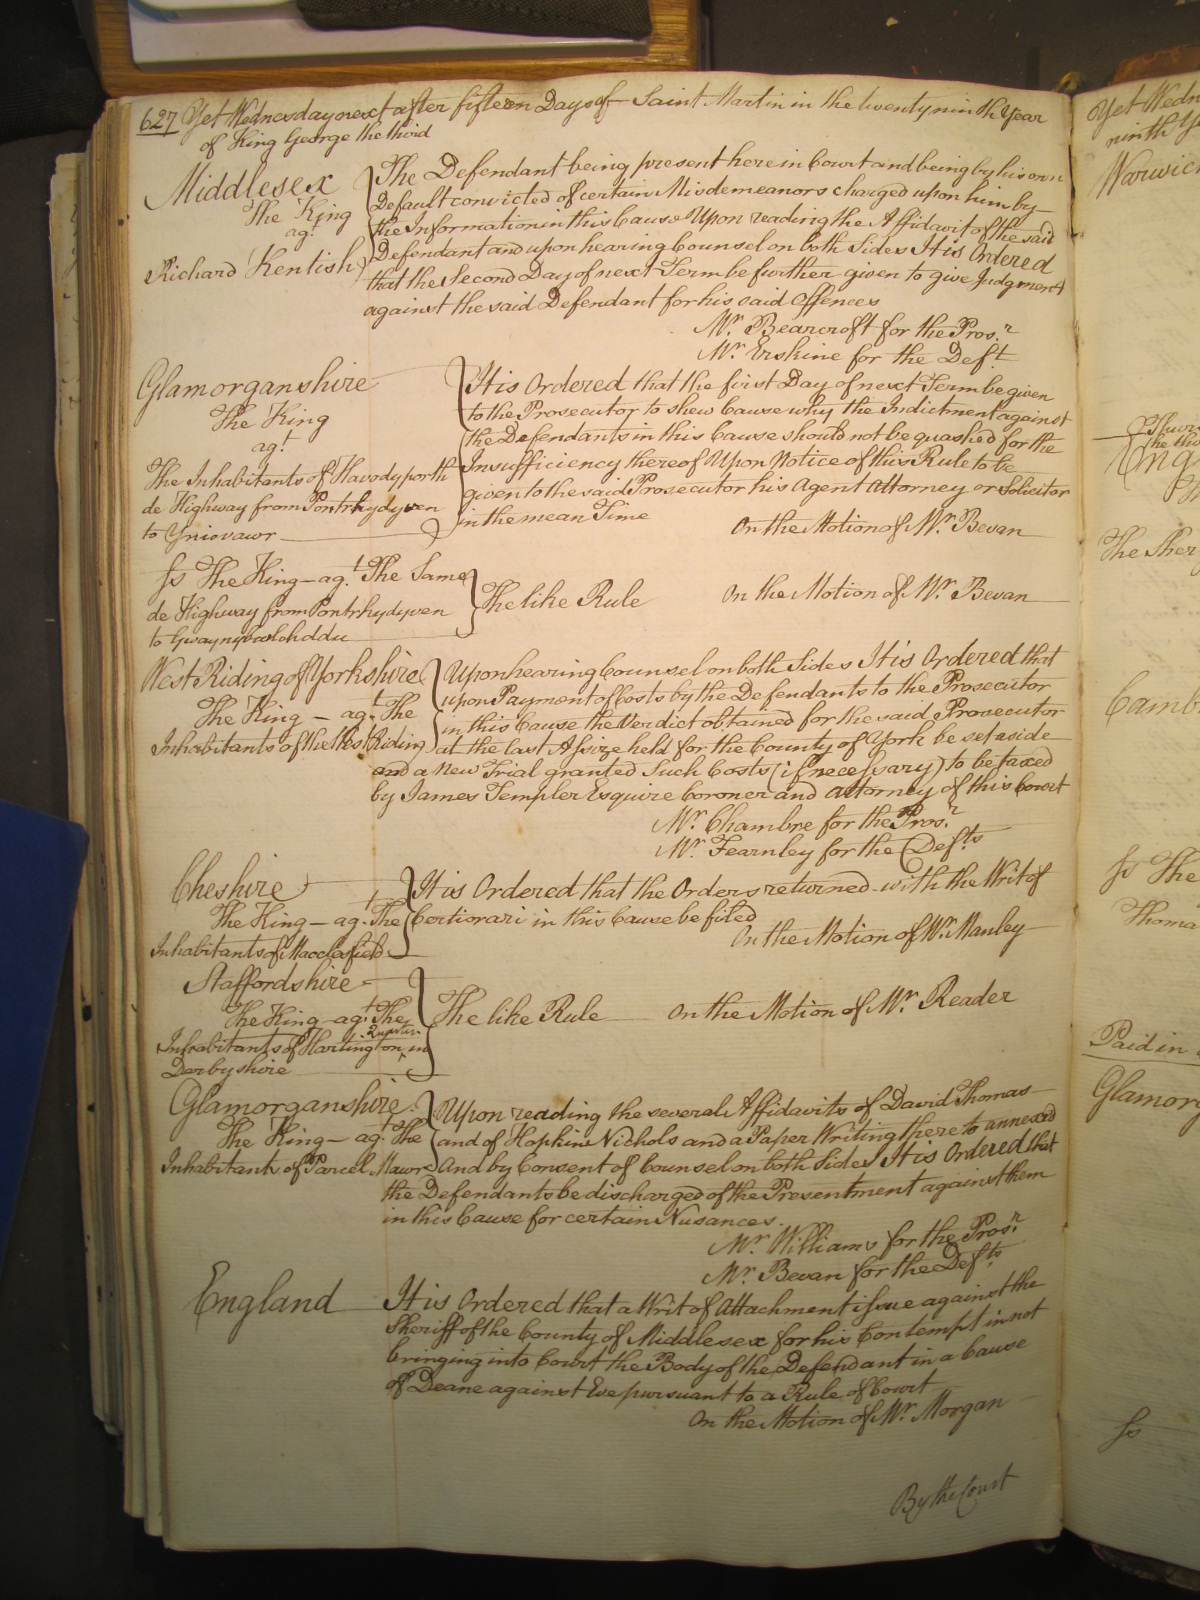 627 Yet Wednesday next after fifteen Days of Saint Martin in the twenty ninth Year
of King George the third
Middlesex
The King
agt.
Richard Kentish
The Defendant being present here in Court and being by his own
Default convicted of certain Misdemeanors charged upon him by
the Information in this Cause Upon reading the Affidavit of the said
Defendant and upon hearing Counsel on both Sides It is Ordered
that the Second Day of next Term be further given to give Judgment
against the said Defendant for his said Offences
Mr. Bearcroft for the Prosr.
Mr. Erskine for the Deft.
Glamorganshire
The King
agt.
The Inhabitants of Havodyporth
de Highway from Pontrhydyven
to Yniovawr
It is Ordered that the first Day of next Term be given
to the Prosecutor to shew Cause why the Indictment against
the Defendants in this Cause should not be quashed for the
Insufficiency thereof Upon Notice of this Rule to be
given to the said Prosecutor his Agent Attorney or Solicitor
in the mean Time On the Motion of Mr. Bevan
Ss The King agt. The Same
de Highway from Pontrhydyven
to
The like Rule On the Motion of Mr. Bevan
West Riding of Yorkshire
The King agt. The
Inhabitants of the West Riding
Upon hearing Counsel on both Sides It is Ordered that
upon Payment of Costs by the Defendants to the Prosecutor
in this Cause the Verdict obtained for the said Prosecutor
at the last Assize held for the County of York be set aside
and a New Trial granted Such Costs (if necessary) to be taxed
by James Templer Esquire Coroner and Attorney of this Court
Mr. Chambre for the Prosr.
Mr. Fearnley for the Defts.
Cheshire
The King agt. The
Inhabitants of Macclesfield
It is Ordered that the Orders returned with the Writ of
Certiorari in this Cause be filed
On the Motion of Mr. Manley
Staffordshire
The King agt. The
Inhabitants of Hartington Quarter in
Derbyshire
The like Rule On the Motion of Mr. Reader
Glamorganshire
The King agt. The
Inhabitants of Parcel Mawr
Upon reading the several Affidavits of David Thomas
and of Hopkin Nichols and a Paper Writing thereto annexed
And by Consent of Counsel on both Sides It is Ordered that
the Defendants be discharged of the Presentment against them
in this Cause for certain Nusances.
Mr. Williams for the Prosr.
Mr. Bevan for the Defts.
England
It is Ordered that a Writ of Attachment issue against the
Sheriff of the County of Middlesex for his Contempt in not
bringing into Court the Body of the Defendant in a Cause
of Deane against Eve pursuant to a Rule of Court
On the Motion of Mr. Morgan
By the Court
Yet Wedn
ninth Ye
Warwic
The Sher
Camb
Ss The
Thoma
Paid in
Glamorg
Ss